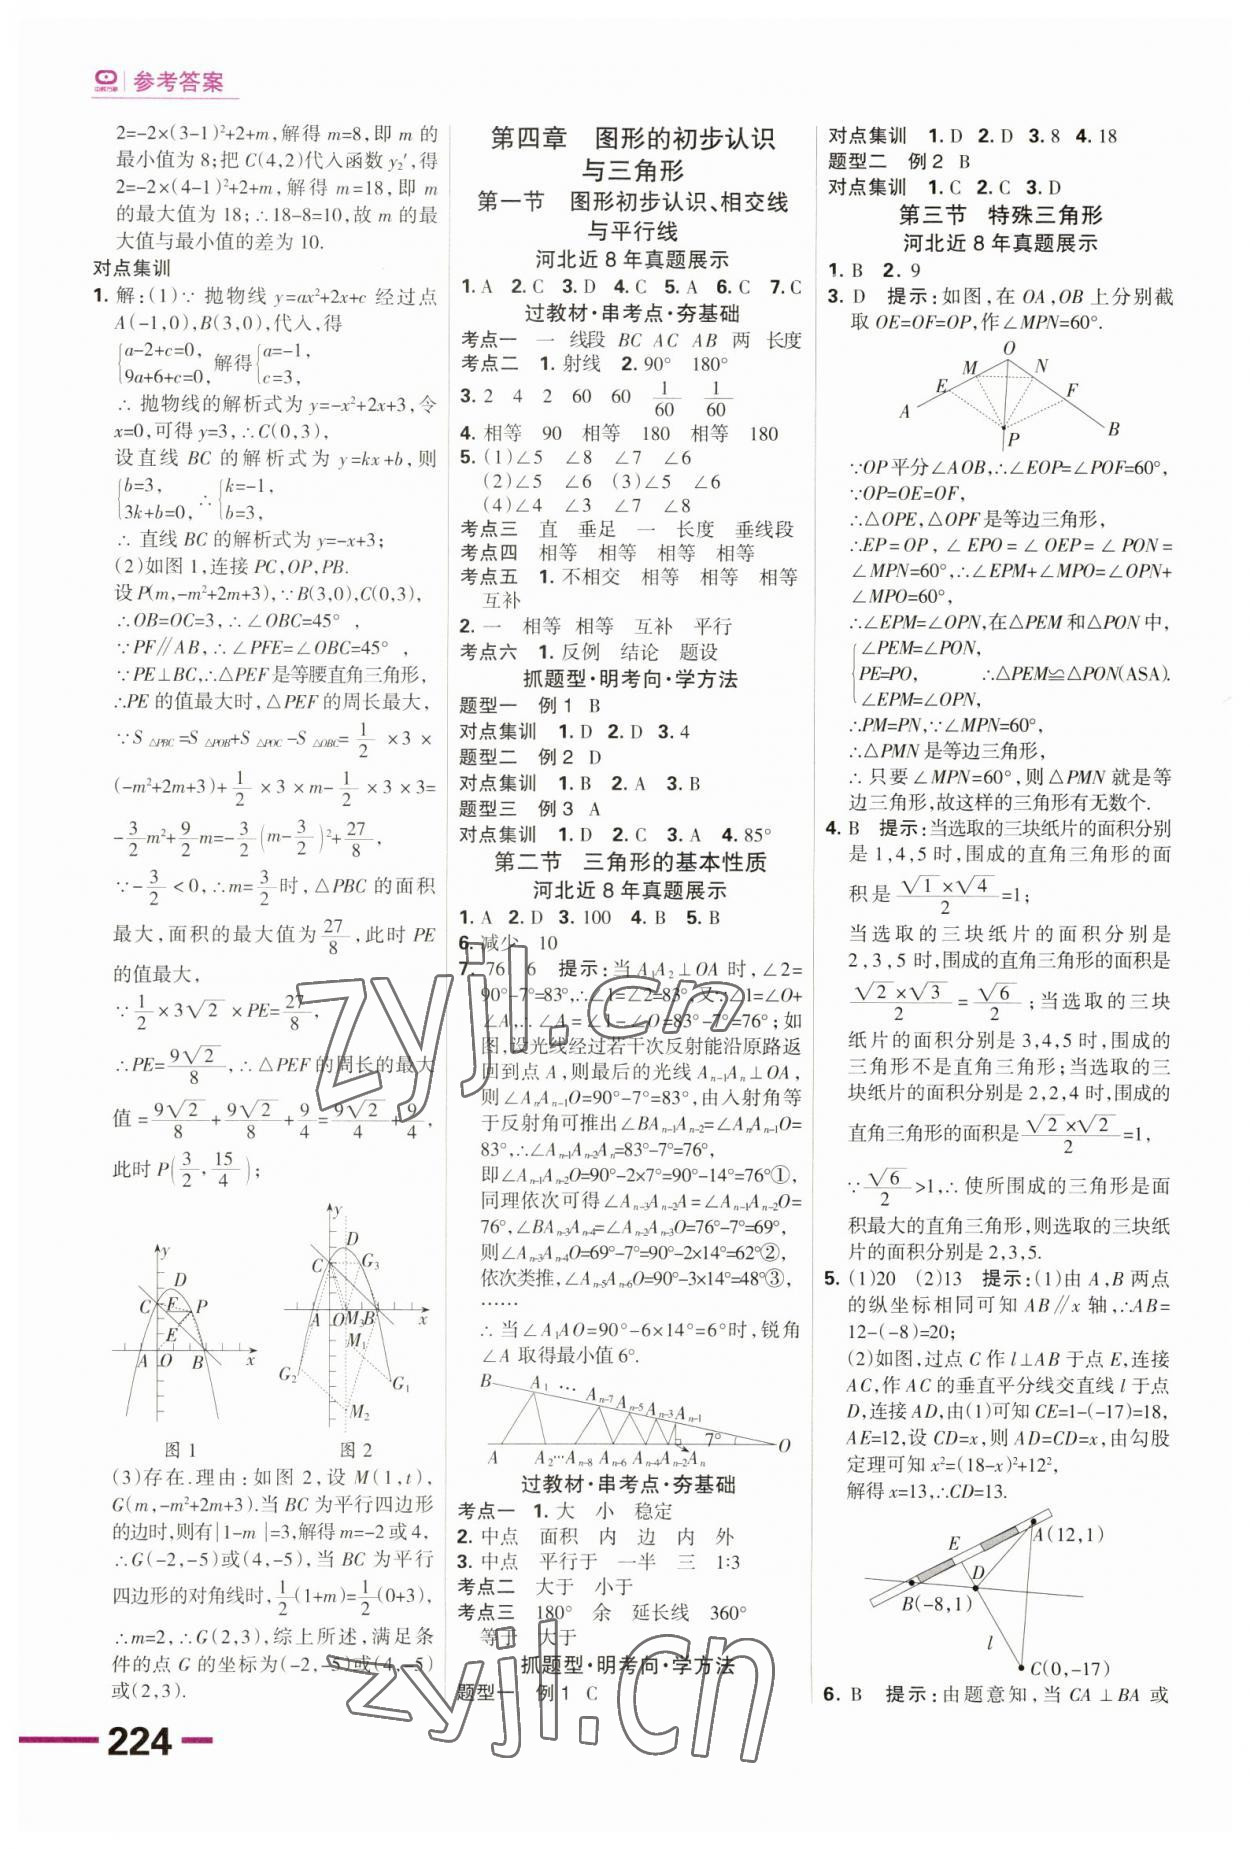 参考答案
2=-2×(3-1)²+2+m,解得 m=8,即 m 的
最小值为 8;把 C(4,2)代入函数 y₂′,得
2=-2×(4-1)²+2+m,解得 m=18,即 m
的最大值为 18;∴18-8=10,故 m 的最
大值与最小值的差为 10.
对点集训
1. 解:(1)∵ 抛物线 y=ax²+2x+c 经过点
A(-1,0),B(3,0),代入,得
{a-2+c=0, 9a+6+c=0, 解得{a=-1, c=3,
∴ 抛物线的解析式为 y=-x²+2x+3,令
x=0,可得 y=3,∴C(0,3),
设直线 BC 的解析式为 y=kx+b,则
{b=3, 3k+b=0, ∴{k=-1, b=3,
∴ 直线 BC 的解析式为 y=-x+3;
(2)如图 1,连接 PC,OP,PB.
设 P(m,-m²+2m+3),∵B(3,0),C(0,3),
∴OB=OC=3,∴∠OBC=45°,
∵PF∥AB,∴∠PFE=∠OBC=45°,
∵PE⊥BC,∴△PEF 是等腰直角三角形,
∴PE 的值最大时,△PEF 的周长最大,
∵S△PBC=S△POB+S△POC-S△OBC=1/2×3×
(-m²+2m+3)+1/2×3×m-1/2×3×3=
-3/2m²+9/2m=-3/2(m-3/2)²+27/8,
∵-3/2<0,∴m=3/2时,△PBC 的面积
最大,面积的最大值为27/8,此时 PE
的值最大,
∵1/2×3√2×PE=27/8,
∴PE=9√2/8,∴△PEF 的周长的最大
值=9√2/8+9√2/8+9/4=9√2/4+9/4,
此时 P(3/2,15/4);
y
D
C F P
E
A O B x
图 1
y
D
C G₃
A O M₃ B x
M₁
G₂ G₁
M₂
图 2
(3)存在.理由:如图 2,设 M(1,t),
G(m,-m²+2m+3).当 BC 为平行四边形
的边时,则有|1-m|=3,解得 m=-2 或 4,
∴G(-2,-5)或(4,-5),当 BC 为平行
四边形的对角线时,1/2(1+m)=1/2(0+3),
∴m=2,∴G(2,3),综上所述,满足条
件的点 G 的坐标为(-2,-5)或(4,-5)
或(2,3).
224
第四章 图形的初步认识
与三角形
第一节 图形初步认识、相交线
与平行线
河北近 8 年真题展示
1. A 2. C 3. D 4. C 5. A 6. C 7. C
过教材·串考点·夯基础
考点一 一 线段 BC AC AB 两 长度
考点二 1. 射线 2. 90° 180°
3. 2 4 2 60 60 1/60 1/60
4. 相等 90 相等 180 相等 180
5. (1)∠5 ∠8 ∠7 ∠6
(2)∠5 ∠6 (3)∠5 ∠6
(4)∠4 ∠3 ∠7 ∠8
考点三 直 垂足 一 长度 垂线段
考点四 相等 相等 相等 相等
考点五 1. 不相交 相等 相等 相等
互补
2. 一 相等 相等 互补 平行
考点六 1. 反例 结论 题设
抓题型·明考向·学方法
题型一 例 1 B
对点集训 1. D 2. D 3. 4
题型二 例 2 D
对点集训 1. B 2. A 3. B
题型三 例 3 A
对点集训 1. D 2. C 3. A 4. 85°
第二节 三角形的基本性质
河北近 8 年真题展示
1. A 2. D 3. 100 4. B 5. B
6. 减少 10
7. 76 6 提示:当 A₁A₂⊥OA 时,∠2=
90°-7°=83°,∴∠1=∠2=83°,又∵∠1=∠O+
∠A,∴∠A=∠1-∠O=83°-7°=76°;如
图,设光线经过若干次反射能沿原路返
回到点 A,则最后的光线 Aₙ₋₁Aₙ⊥OA,
则∠AₙAₙ₋₁O=90°-7°=83°,由入射角等
于反射角可推出∠BAₙ₋₁Aₙ₋₂=∠AₙAₙ₋₁O=
83°,∴∠Aₙ₋₁Aₙ₋₂Aₙ=83°-7°=76°,
即∠Aₙ₋₁Aₙ₋₂O=90°-2×7°=90°-14°=76°①,
同理依次可得∠Aₙ₋₃Aₙ₋₂A=∠Aₙ₋₁Aₙ₋₂O=
76°,∠BAₙ₋₃Aₙ₋₄=∠Aₙ₋₂Aₙ₋₃O=76°-7°=69°,
则∠Aₙ₋₃Aₙ₋₄O=69°-7°=90°-2×14°=62°②,
依次类推,∠Aₙ₋₅Aₙ₋₆O=90°-3×14°=48°③,
……
∴ 当∠A₁AO=90°-6×14°=6°时,锐角
∠A 取得最小值 6°.
B A₁ … Aₙ₋₇ Aₙ₋₅ Aₙ₋₃ Aₙ₋₁
7°
A A₂…Aₙ₋₈ Aₙ₋₆ Aₙ₋₄ Aₙ₋₂ Aₙ O
过教材·串考点·夯基础
考点一 1. 大 小 稳定
2. 中点 面积 内 边 内 外
3. 中点 平行于 一半 三 1:3
考点二 大于 小于
考点三 180° 余 延长线 360°
等于 大于
抓题型·明考向·学方法
题型一 例 1 C
对点集训 1. D 2. D 3. 8 4. 18
题型二 例 2 B
对点集训 1. C 2. C 3. D
第三节 特殊三角形
河北近 8 年真题展示
1. B 2. 9
3. D 提示:如图,在 OA,OB 上分别截
取 OE=OF=OP,作∠MPN=60°.
O
M N
E F
A P B
∵OP 平分∠AOB,∴∠EOP=∠POF=60°,
∵OP=OE=OF,
∴△OPE,△OPF 是等边三角形,
∴EP=OP,∠EPO=∠OEP=∠PON=
∠MPN=60°,∴∠EPM+∠MPO=∠OPN+
∠MPO=60°,
∴∠EPM=∠OPN,在△PEM 和△PON 中,
{∠PEM=∠PON,
PE=PO, ∴△PEM≌△PON(ASA).
∠EPM=∠OPN,
∴PM=PN,∵∠MPN=60°,
∴△PMN 是等边三角形,
∴ 只要∠MPN=60°,则△PMN 就是等
边三角形,故这样的三角形有无数个.
4. B 提示:当选取的三块纸片的面积分别
是 1,4,5 时,围成的直角三角形的面
积是√1×√4/2=1;
当选取的三块纸片的面积分别是
2,3,5 时,围成的直角三角形的面积是
√2×√3/2=√6/2;当选取的三块
纸片的面积分别是 3,4,5 时,围成的
三角形不是直角三角形;当选取的三
块纸片的面积分别是 2,2,4 时,围成的
直角三角形的面积是√2×√2/2=1,
∵√6/2>1,∴ 使所围成的三角形是面
积最大的直角三角形,则选取的三块纸
片的面积分别是 2,3,5.
5. (1)20 (2)13 提示:(1)由 A,B 两点
的纵坐标相同可知 AB∥x 轴,∴AB=
12-(-8)=20;
(2)如图,过点 C 作 l⊥AB 于点 E,连接
AC,作 AC 的垂直平分线交直线 l 于点
D,连接 AD,由(1)可知 CE=1-(-17)=18,
AE=12,设 CD=x,则 AD=CD=x,由勾股
定理可知 x²=(18-x)²+12²,
解得 x=13,∴CD=13.
A(12,1)
E
D
B(-8,1)
l
C(0,-17)
6. B 提示:由题意知,当 CA⊥BA 或
zyjl.cn
zyjl.cn